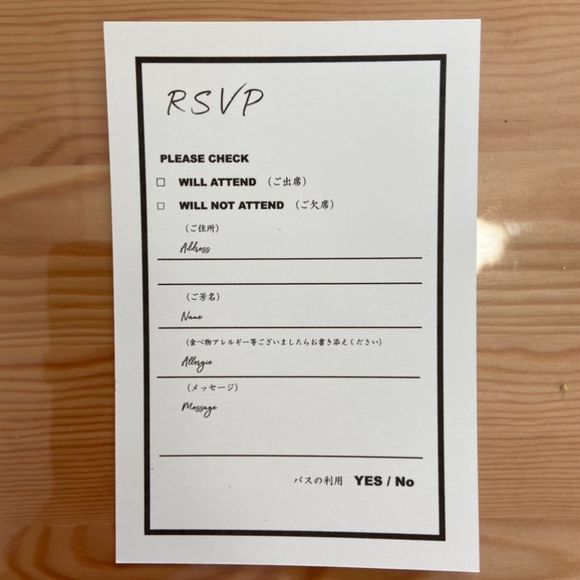 RSVP
PLEASE CHECK
□ WILL ATTEND （ご出席）
□ WILL NOT ATTEND （ご欠席）
（ご住所）
Address
（ご芳名）
Name
（食べ物アレルギー等ございましたらお書き添えください）
Allergie
（メッセージ）
Message
バスの利用 YES / No